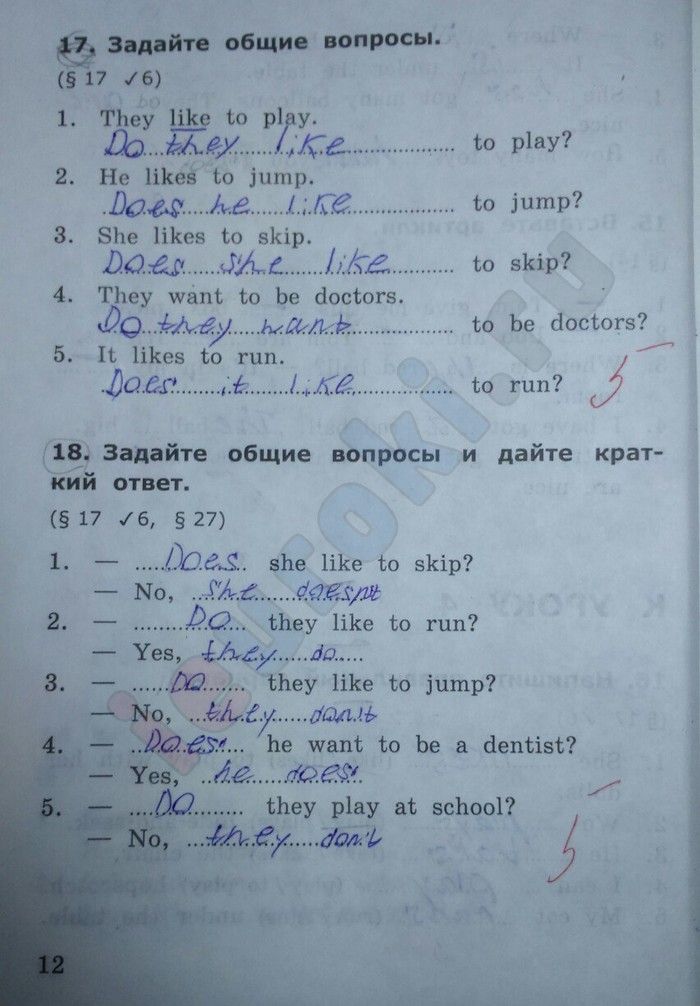 17. Задайте общие вопросы.
(§ 17 ✓6)
1. They like to play.
Do they like to play?
2. He likes to jump.
Does he like to jump?
3. She likes to skip.
Does she like to skip?
4. They want to be doctors.
Do they want to be doctors?
5. It likes to run.
Does it like to run?
5-
18. Задайте общие вопросы и дайте крат-
кий ответ.
(§ 17 ✓6, § 27)
1. — Does she like to skip?
— No, she doesn't
2. — Do they like to run?
— Yes, they do
3. — Do they like to jump?
— No, they don't
4. — Does he want to be a dentist?
— Yes, he does
5. — Do they play at school?
— No, they don't
5-
12